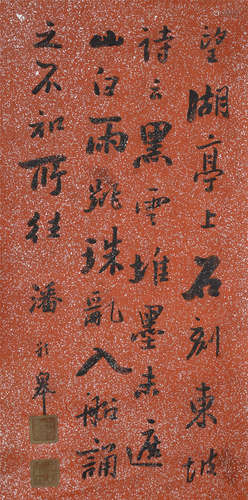 望湖亭上石刻東坡
詩云黑雲堆墨未遮
山白雨跳珠亂入船誦
之不知所往 潘